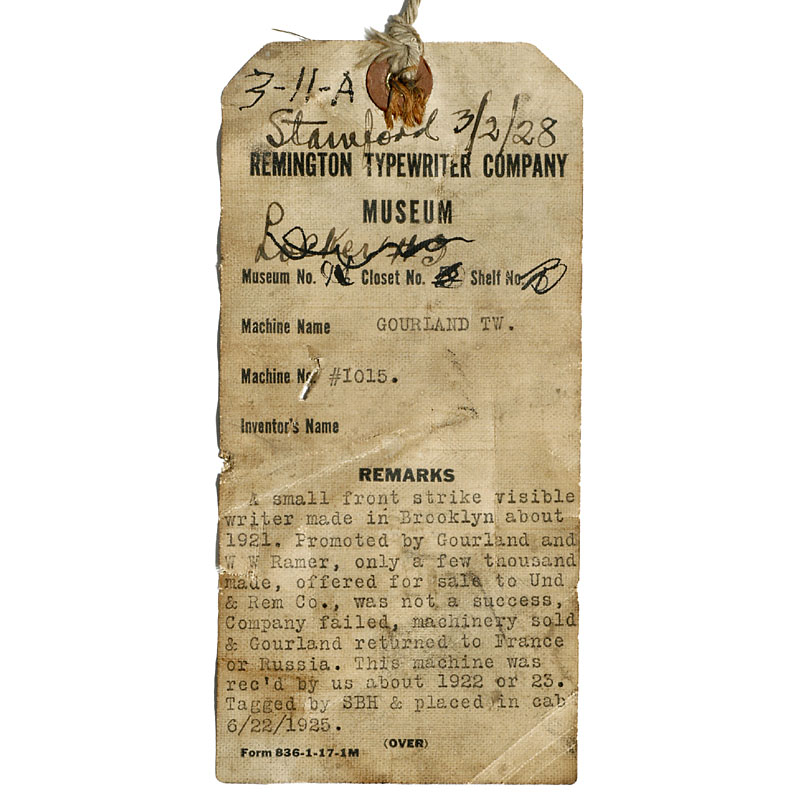 3-11-A
Stamford 3/2/28
REMINGTON TYPEWRITER COMPANY
MUSEUM
Locker #3
Museum No. Closet No. Shelf No. B
Machine Name GOURLAND TW.
Machine No. #1015.
Inventor's Name
REMARKS
A small front strike visible
writer made in Brooklyn about
1921. Promoted by Gourland and
W W Ramer, only a few thousand
made, offered for sale to Und
& Rem Co., was not a success,
Company failed, machinery sold
& Gourland returned to France
or Russia. This machine was
rec'd by us about 1922 or 23.
Tagged by SBH & placed in cab
6/22/1925.
(OVER)
Form 836-1-17-1M